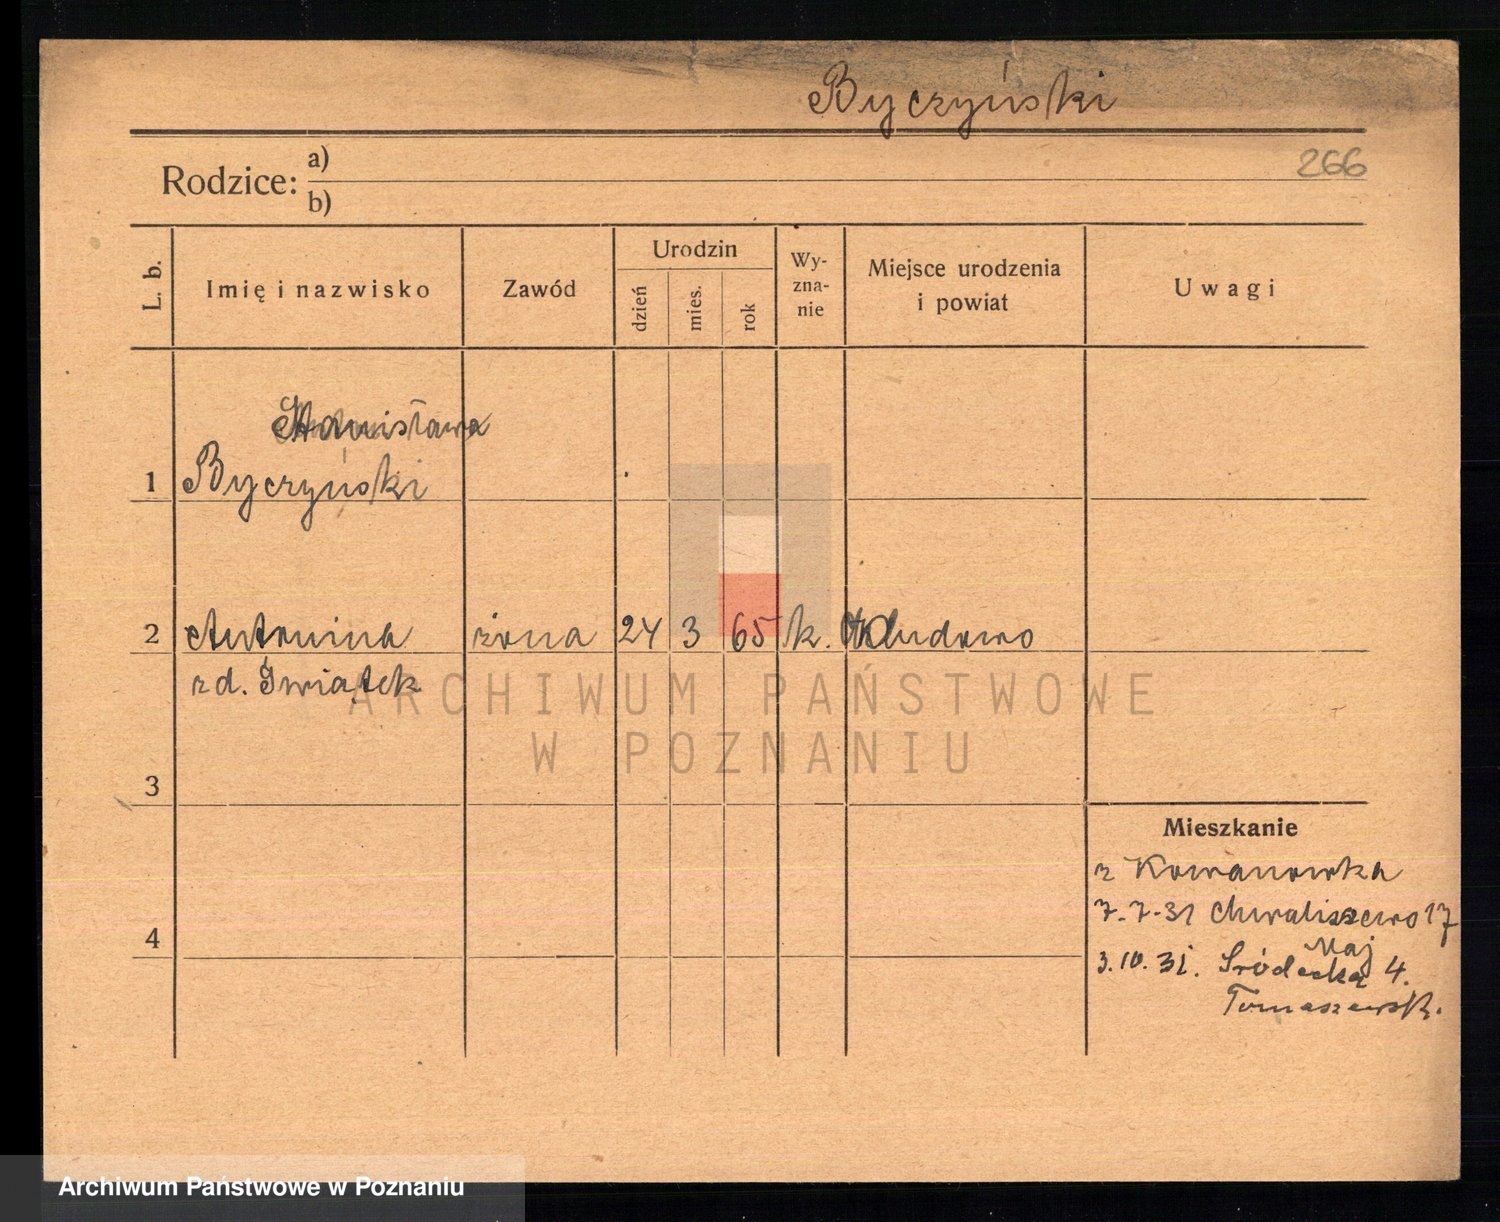 Byczyński
266
Rodzice: a)
b)
L. b.
Imię i nazwisko
Zawód
Urodzin
dzień
mies.
rok
Wy-
zna-
nie
Miejsce urodzenia
i powiat
Uwagi
Stanisława
1 Byczyński
2 Antonina żona 24 3 65 k. Objezierze
zd. Świątek
3
4
Mieszkanie
z Kowanówka
7.-7-31 Chwaliszewo 17
Maj
3.10.31. Śródecka 4.
Tomaszewsk.
ARCHIWUM PAŃSTWOWE
W POZNANIU
Archiwum Państwowe w Poznaniu